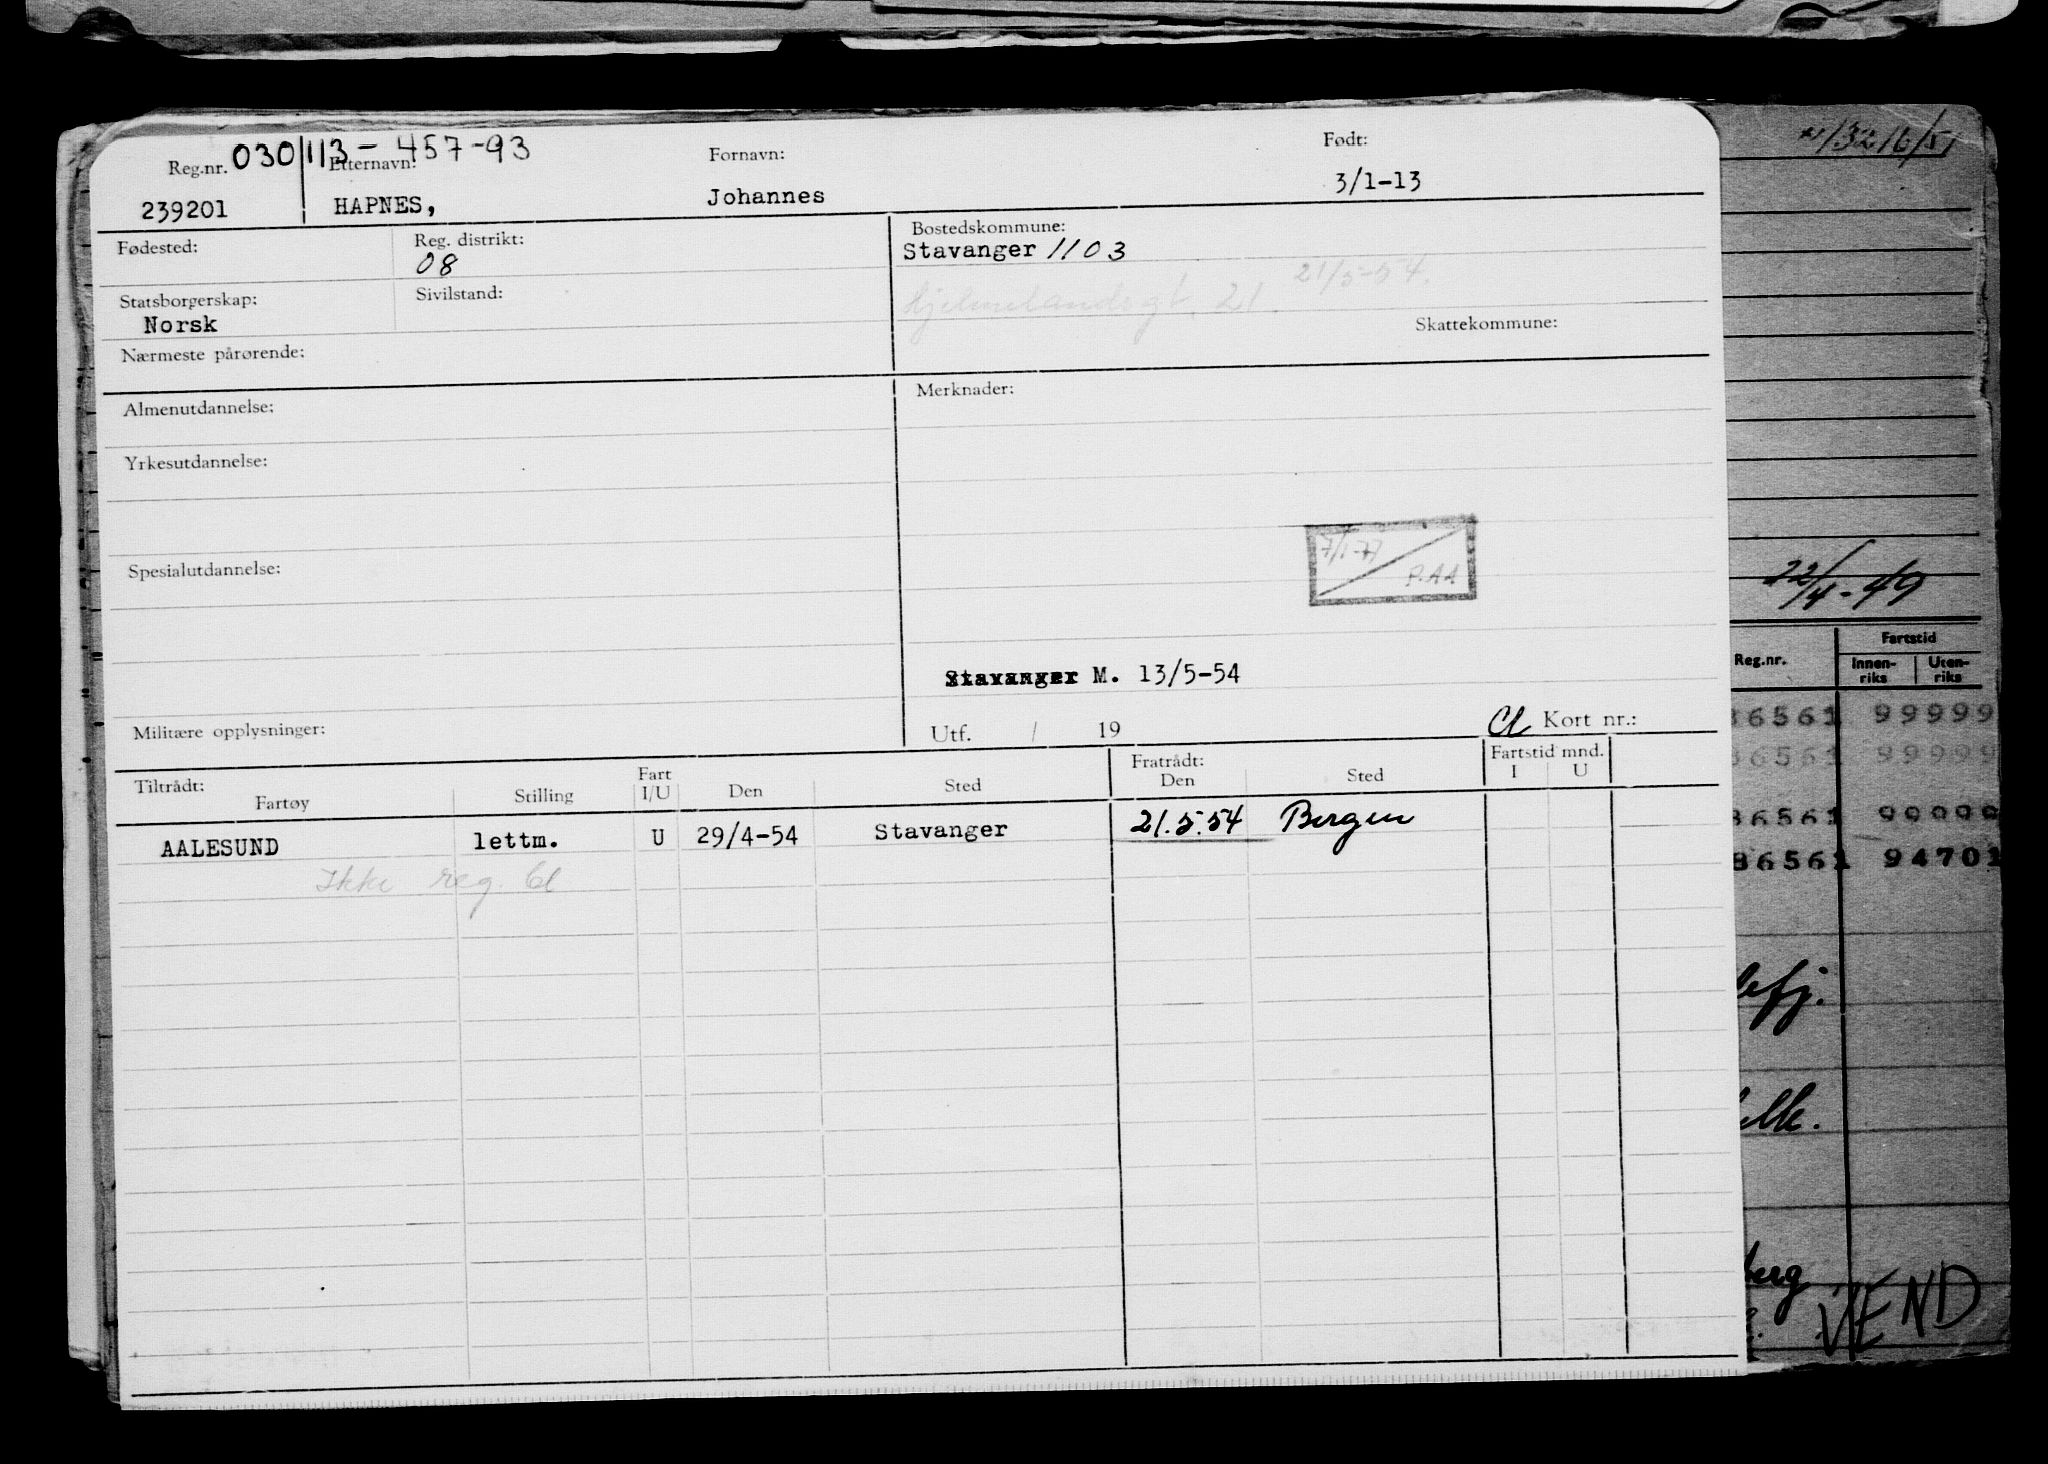 Reg.nr. 030113-457-93
Etternavn:
Fornavn:
Født:
239201
HAPNES,
Johannes
3/1-13
Fødested:
Reg. distrikt:
08
Bostedskommune:
Stavanger 1103
21/5-54.
Hjelmelandsgt. 21.
Statsborgerskap:
Norsk
Sivilstand:
Skattekommune:
Nærmeste pårørende:
Almenutdannelse:
Merknader:
Yrkesutdannelse:
7/1-77
P.AA
Spesialutdannelse:
Stavanger M. 13/5-54
Militære opplysninger:
Utf. / 19
Cl Kort nr.:
Tiltrådt:
Fartøy
Stilling
Fart
I/U
Den
Sted
Fratrådt:
Den
Sted
Fartstid mnd.
I U
AALESUND
lettm.
U
29/4-54
Stavanger
21.5.54
Bergen
Ikke reg. Cl
22/4-49
Reg.nr.
Fartstid
Innen-
riks
Uten-
riks
36561 99999
36561 99999
36561 99999
36561 94701
lefj.
elk.
berg
VEND